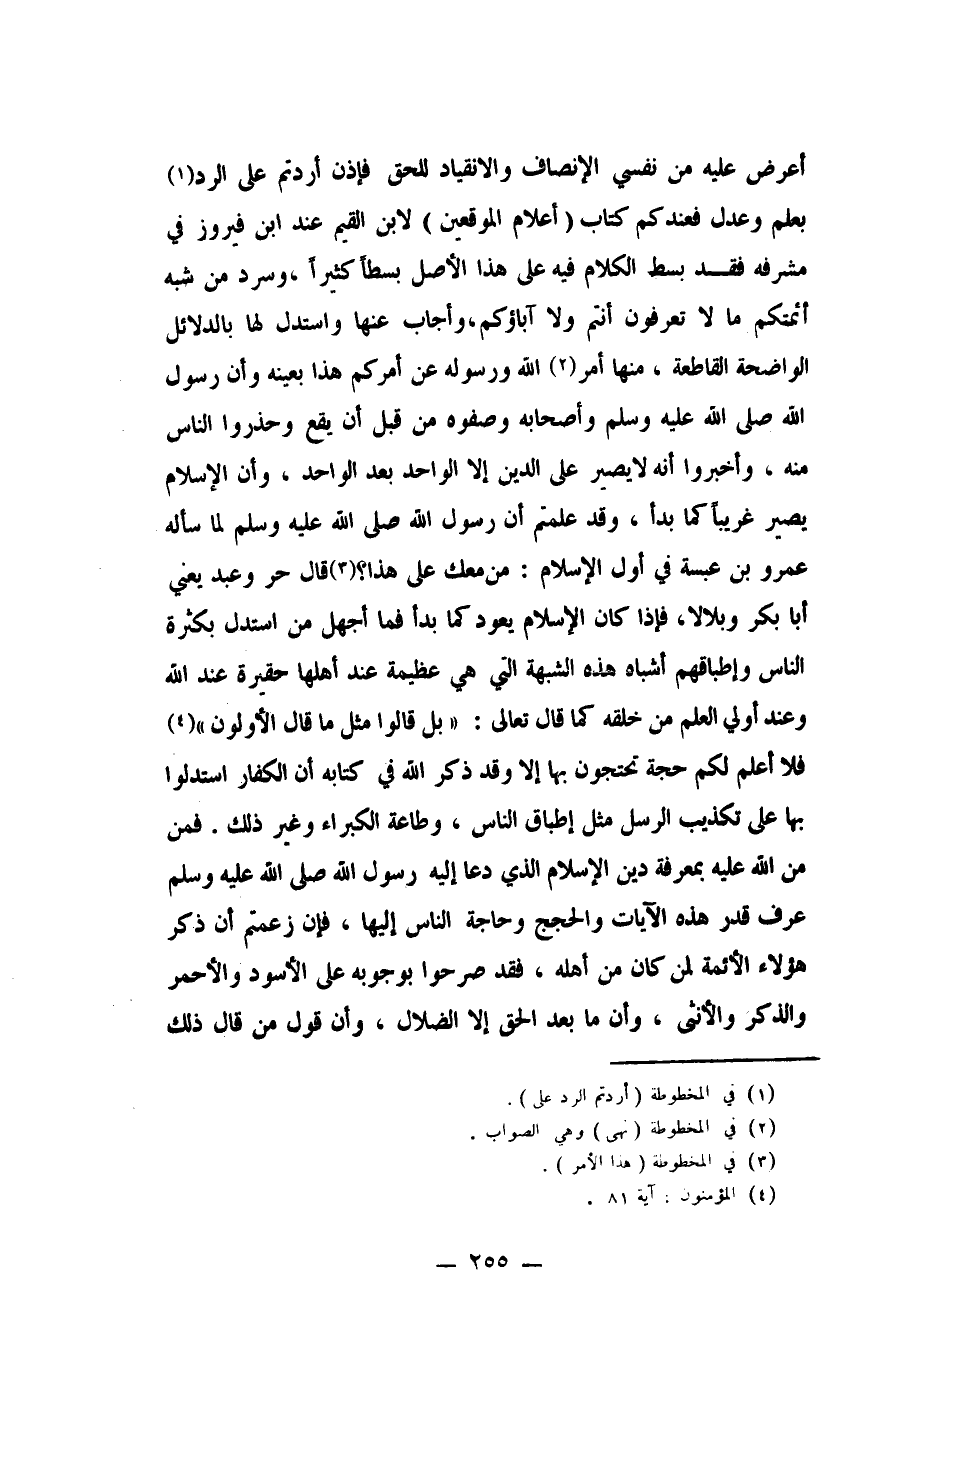 أعرض عليه من نفسي الإنصاف والانقياد للحق فإذن أردتم على الرد(١)
بعلم وعدل فعندكم كتاب ( أعلام الموقعين ) لابن القيم عند ابن فيروز في
مشرفه فقـــد بسط الكلام فيه على هذا الأصل بسطاً كثيراً ،وسرد من شبه
أئمتكم ما لا تعرفون أنتم ولا آباؤكم،وأجاب عنها واستدل لها بالدلائل
الواضحة القاطعة ، منها أمر(٢) الله ورسوله عن أمركم هذا بعينه وأن رسول
الله صلى الله عليه وسلم وأصحابه وصفوه من قبل أن يقع وحذروا الناس
منه ، وأخبروا أنه لايصير على الدين إلا الواحد بعد الواحد ، وأن الإسلام
يصير غريباً كما بدأ ، وقد علمتم أن رسول الله صلى الله عليه وسلم لما سأله
عمرو بن عبسة في أول الإسلام : من معك على هذا؟(٣)قال حر وعبد يعني
أبا بكر وبلالا، فإذا كان الإسلام يعود كما بدأ فما أجهل من استدل بكثرة
الناس وإطباقهم أشباه هذه الشبهة التي هي عظيمة عند أهلها حقيرة عند الله
وعند أولي العلم من خلقه كما قال تعالى : « بل قالوا مثل ما قال الأولون »(٤)
فلا أعلم لكم حجة تحتجون بها إلا وقد ذكر الله في كتابه أن الكفار استدلوا
بها على تكذيب الرسل مثل إطباق الناس ، وطاعة الكبراء وغير ذلك . فمن
من الله عليه بمعرفة دين الإسلام الذي دعا إليه رسول الله صلى الله عليه وسلم
عرف قدر هذه الآيات والحجج وحاجة الناس إليها ، فإن زعمتم أن ذكر
هؤلاء الأئمة لمن كان من أهله ، فقد صرحوا بوجوبه على الأسود والأحمر
والذكر والأنثى ، وأن ما بعد الحق إلا الضلال ، وأن قول من قال ذلك
(١) في المخطوطة ( أردتم الرد على ) .
(٢) في المخطوطة ( نهى ) وهي الصواب .
(٣) في المخطوطة ( هذا الأمر ) .
(٤) المؤمنون : آية ٨١ .
— ٢٥٥ —